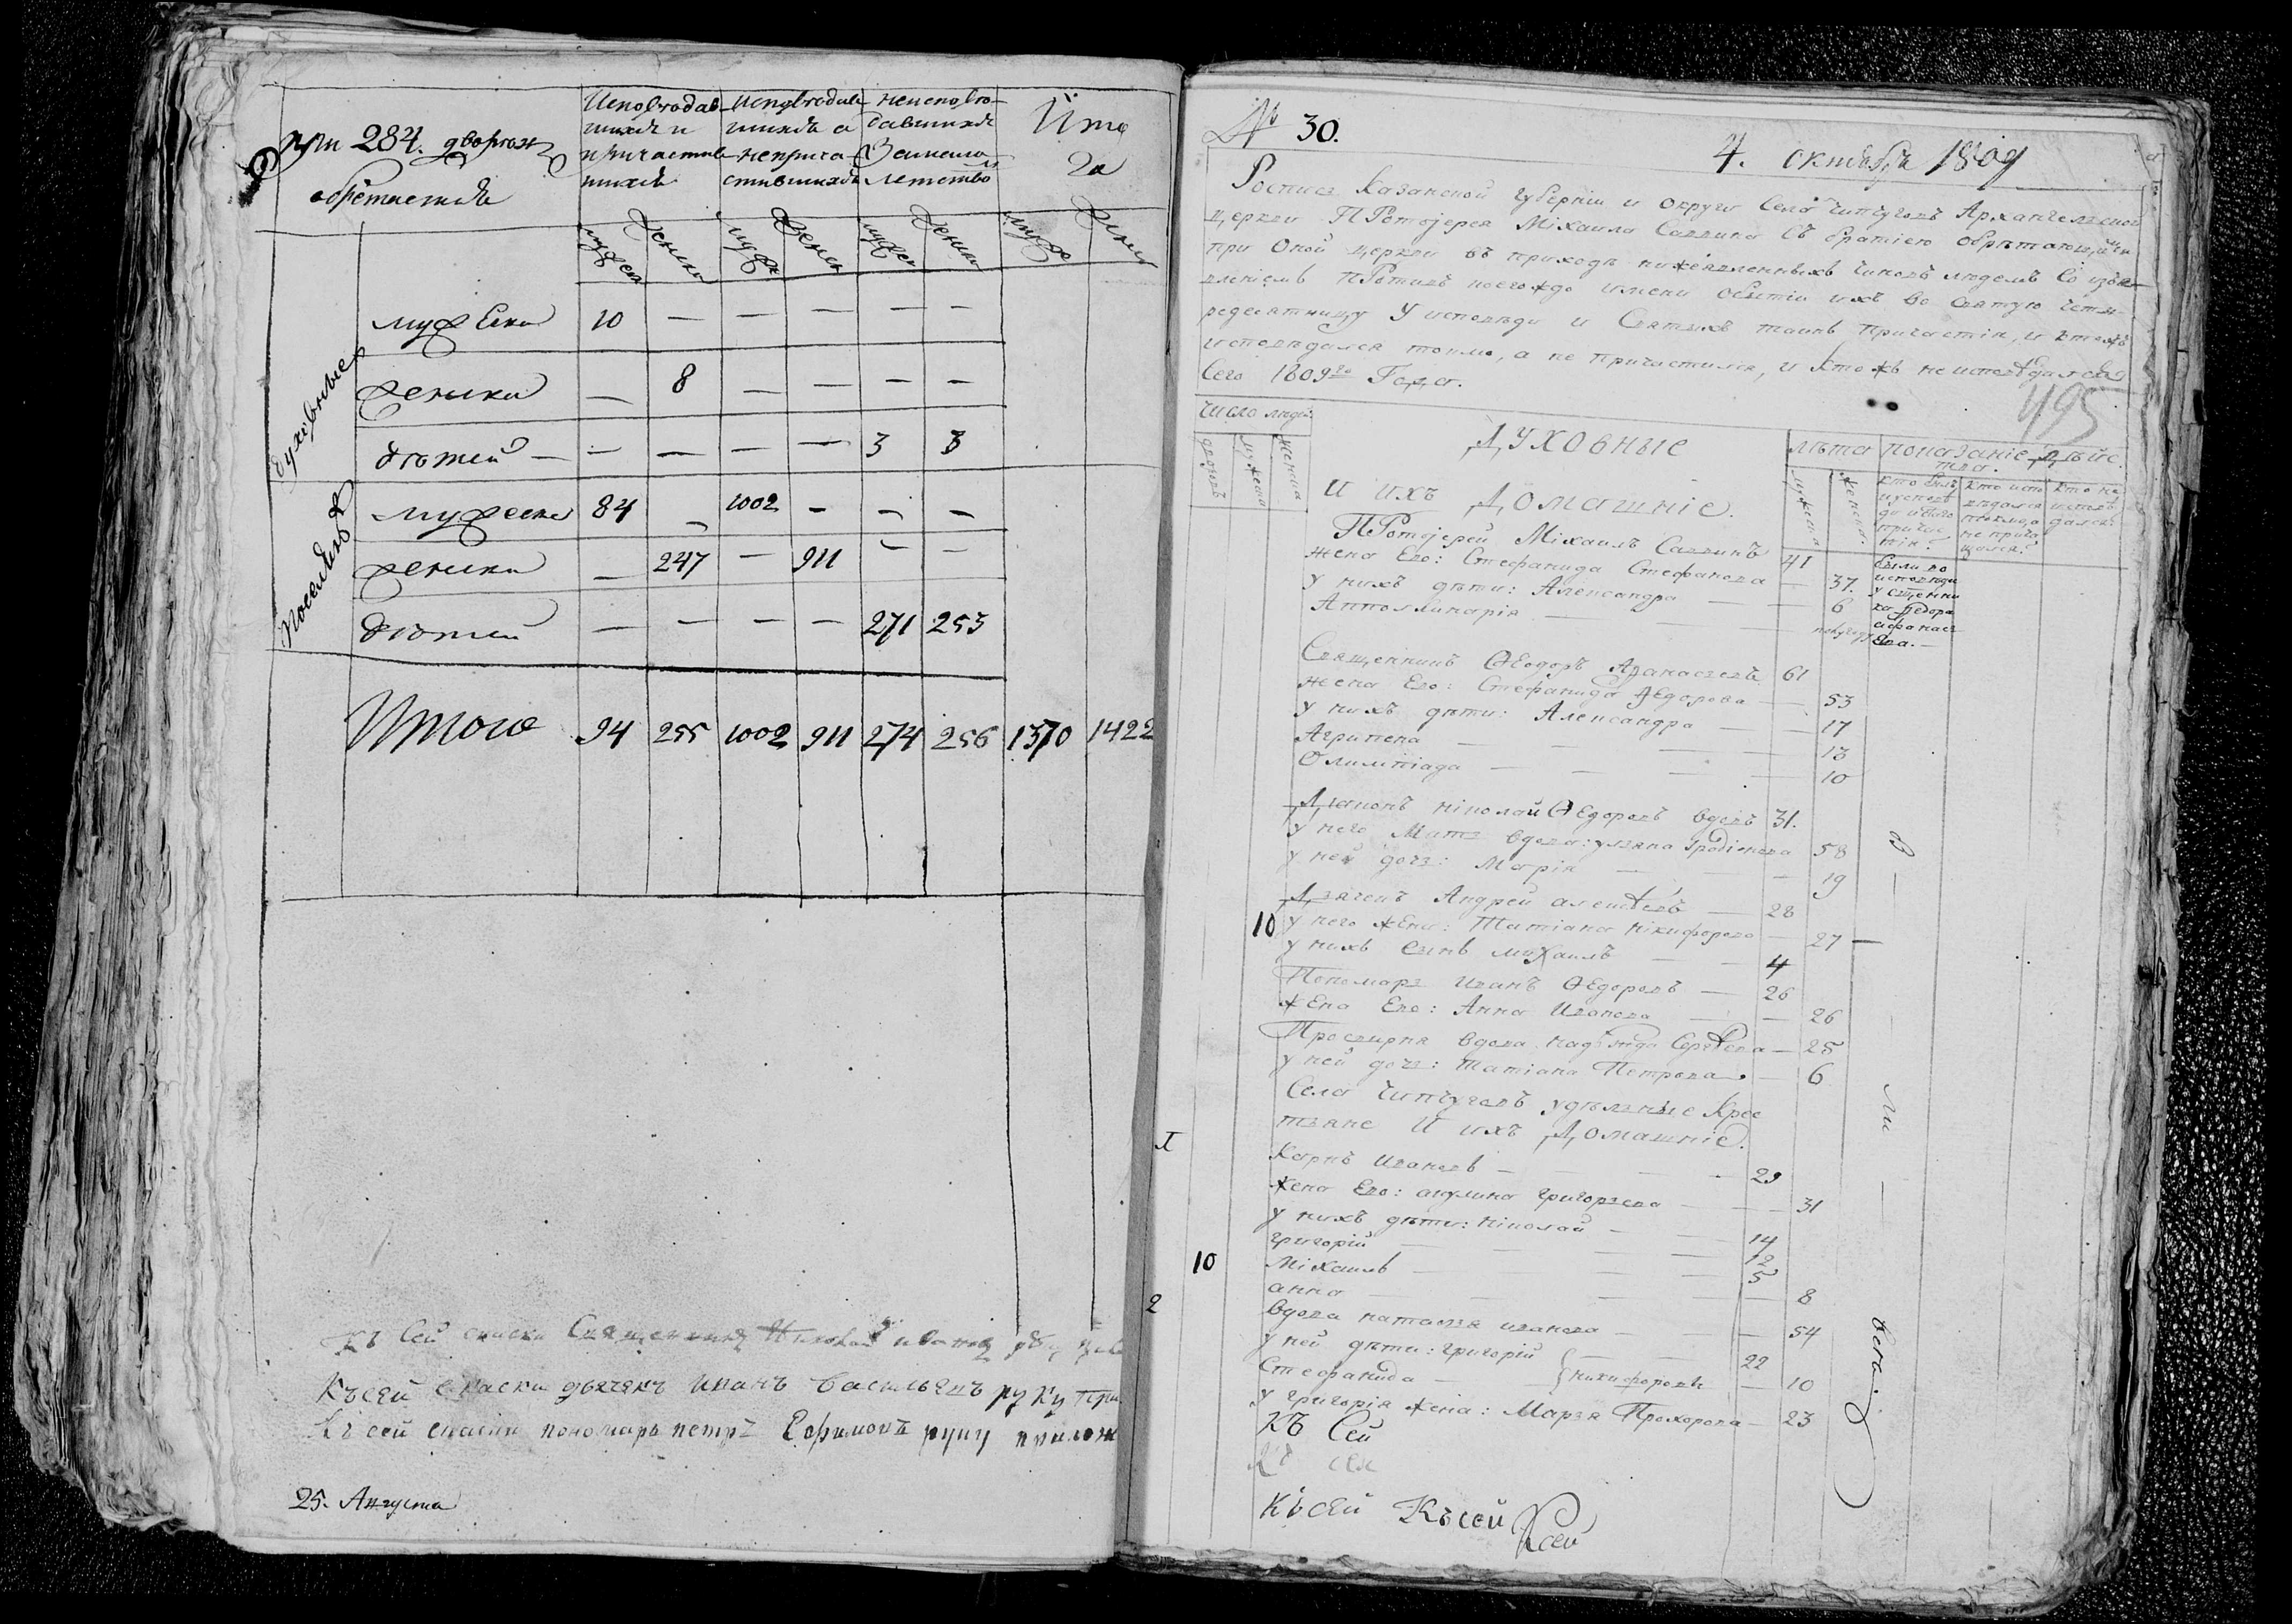 при 284. дворахъ
обретается
Исповедав- Исповедав- неисповѣ-
шихся и шихся а давшихся Ито
причастив- неприча- За мало го
шихся стившихся летство
мужеска женска мужеск женск мужеск женска муже женск
Духовные
мужеска 10 — — — — —
женска — 8 — — — —
дѣтей — — — — — 3 3
Поселянъ
мужеска 84 — 1002 — — —
женска — 247 — 911 — —
дѣтей — — — — 271 253
Итого 94 255 1002 911 274 256 1370 1422
Къ Сей Священникъ Ивановъ
Къ сей дьячекъ Иванъ Васильевъ руку при
Къ сей пономарь петръ Ефимовъ руку прилож
25. Августа
№ 30.
4. октября 1809
Роспись Казанской губернїи и округи Села Чипчуговъ Архангельской
церкви ПРотоїерея Міхаила Саввина съ братїею обрѣтающїйся
при Оной церкви въ приходѣ нижеявленныхъ Чиновъ людемъ Со изъяв-
ленїемъ ПРотивъ коегождо имени бытїи ихъ во Святую Четы-
редесятницу У исповѣди и Святыхъ таинъ Причастїя, и ктожъ
исповѣдался токмо, а не причастился, и Кто жъ не исповѣдался
Сего 1809го Года.
495
Число людей
дворовъ мужеска женска
Духовные
И ихъ Домашніе.
лѣта показаніе дѣйс.
тва.
мужеска женска.
кто былъ у исповѣди и Прич. тїя?
кто испо вѣдался токмо а не прича щался?
кто не исповѣ дался
ПРотоїерей Міхаилъ Саввинъ 41
жена Его: Стефанида Стефанова — 37.
у нихъ дѣти: Александра — — 6
Апполлинарія — —
были во исповѣди у Сщенни ка Федора афанась Ева. —
Священникъ Ѳеодоръ Афанасьевъ 61
жена Его: Стефанида Ѳедорова — 53
у нихъ дѣти: Александра — — 17
Агрипена — — — — 13
Олимпіада — — — — 10
Дїаконъ ніколай Ѳедоровъ вдовъ 31.
у него Мать вдова: ульяна Родіонова 58
у ней дочь: Марія — — — 19
Дьячекъ Андрей алеѯѣевъ — 28
10 у него жена: Татіана нікифорова — 27 —
у нихъ сынъ михаилъ — — 4
Пономарь Иванъ Ѳедоровъ — 26
жена Его: Анна Иванова — — 26
Просвирня вдова надѣжда Сергѣева — 25
у ней дочь: Татіана Петрова. — 6
Села Чипчуговъ удѣльные Крес
тьяне И ихъ Домашніе.
1
Карпъ Ивановъ — — — 29
жена Его: акулина григорьева — — 31
у нихъ дѣти: ніколай — — 14
григорій — — — — 12
10 Міхаилъ — — — 5
анна — — — — 8
2 вдова наталья иванова — — 54
у ней дѣти: григорій — — 22
Стефанида — никифоровы — 10
у григорія жена: Марья Прохорова — 23
Бы — ли — всѣ
КЪ Сей
Къ сей
Къ сей Къ сей Ксей